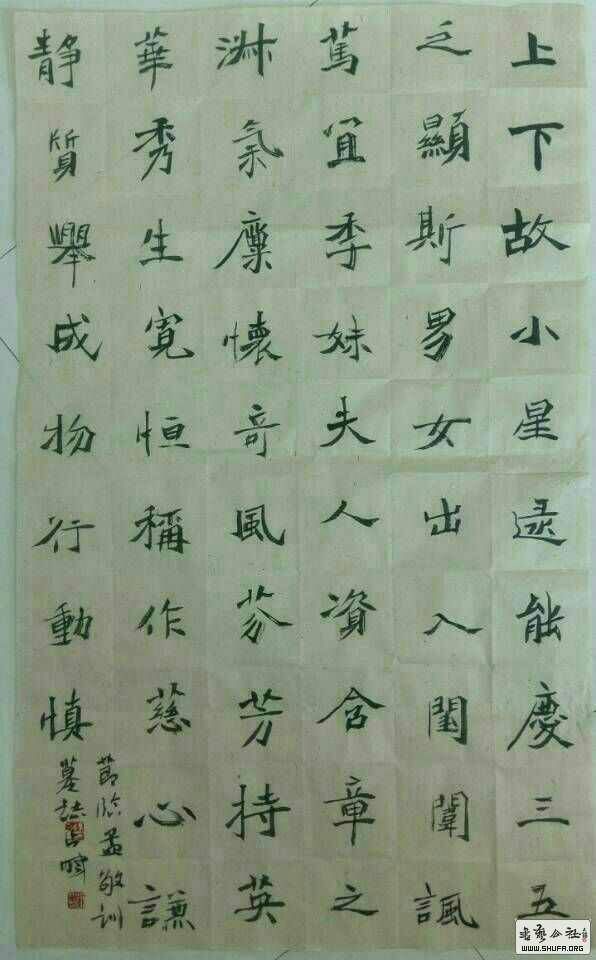 上下故小星逮能慶三五
之顯斯男女出入閨闈諷
篤宜季妹夫人資含章之
淋氣廩懷奇風芬芳持英
華秀生寬恒稱作慈心謙
靜質舉成物行動慎
節臨孟敬訓
墓誌
书艺公社
WWW.SHUFA.ORG